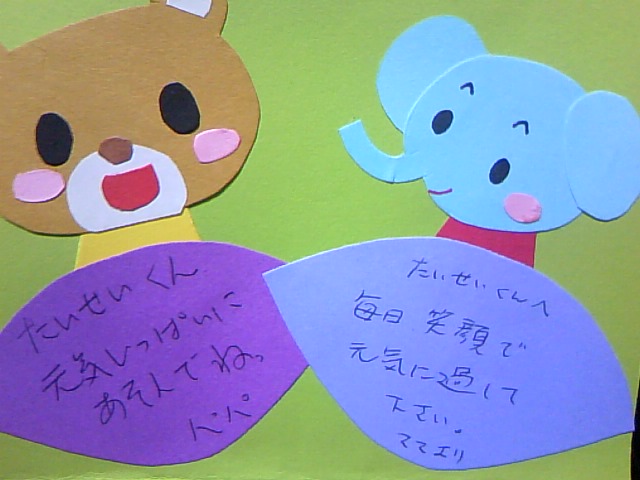 たいせいくん
元気いっぱいに
あそんでねっ
パパ
たいせいくんへ
毎日 笑顔で
元気に過して
下さい。
ママエリ